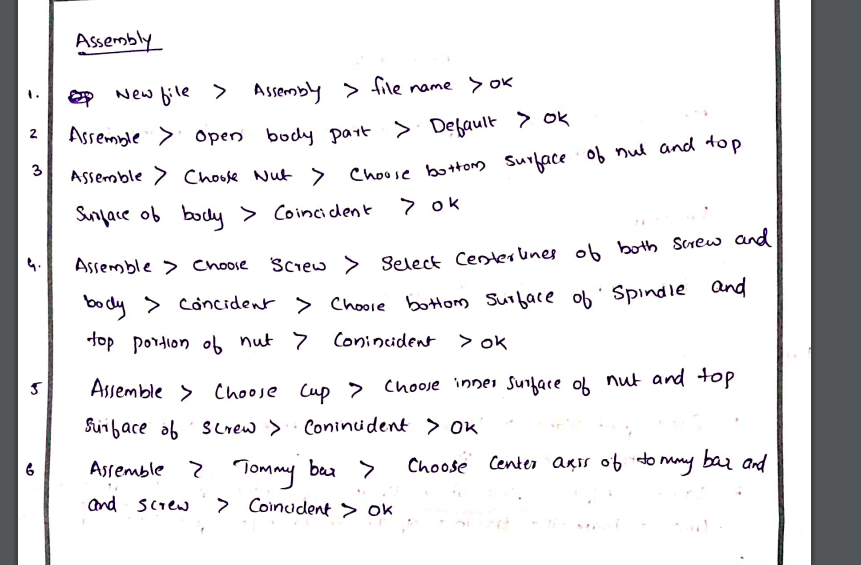 Assembly
1. New file > Assembly > file name > OK
2 Assemble > Open body part > Default > OK
3 Assemble > Choose Nut > Choose bottom surface of nut and top
Surface of body > Coincident > OK
4. Assemble > Choose Screw > Select Centerlines of both screw and
body > Concident > Choose bottom surface of Spindle and
top portion of nut > Conincident > OK
5 Assemble > Choose Cup > Choose inner surface of nut and top
Surface of screw > Conincident > OK
6 Assemble > Tommy bar > Choose Center axis of tommy bar and
and screw > Coincident > OK